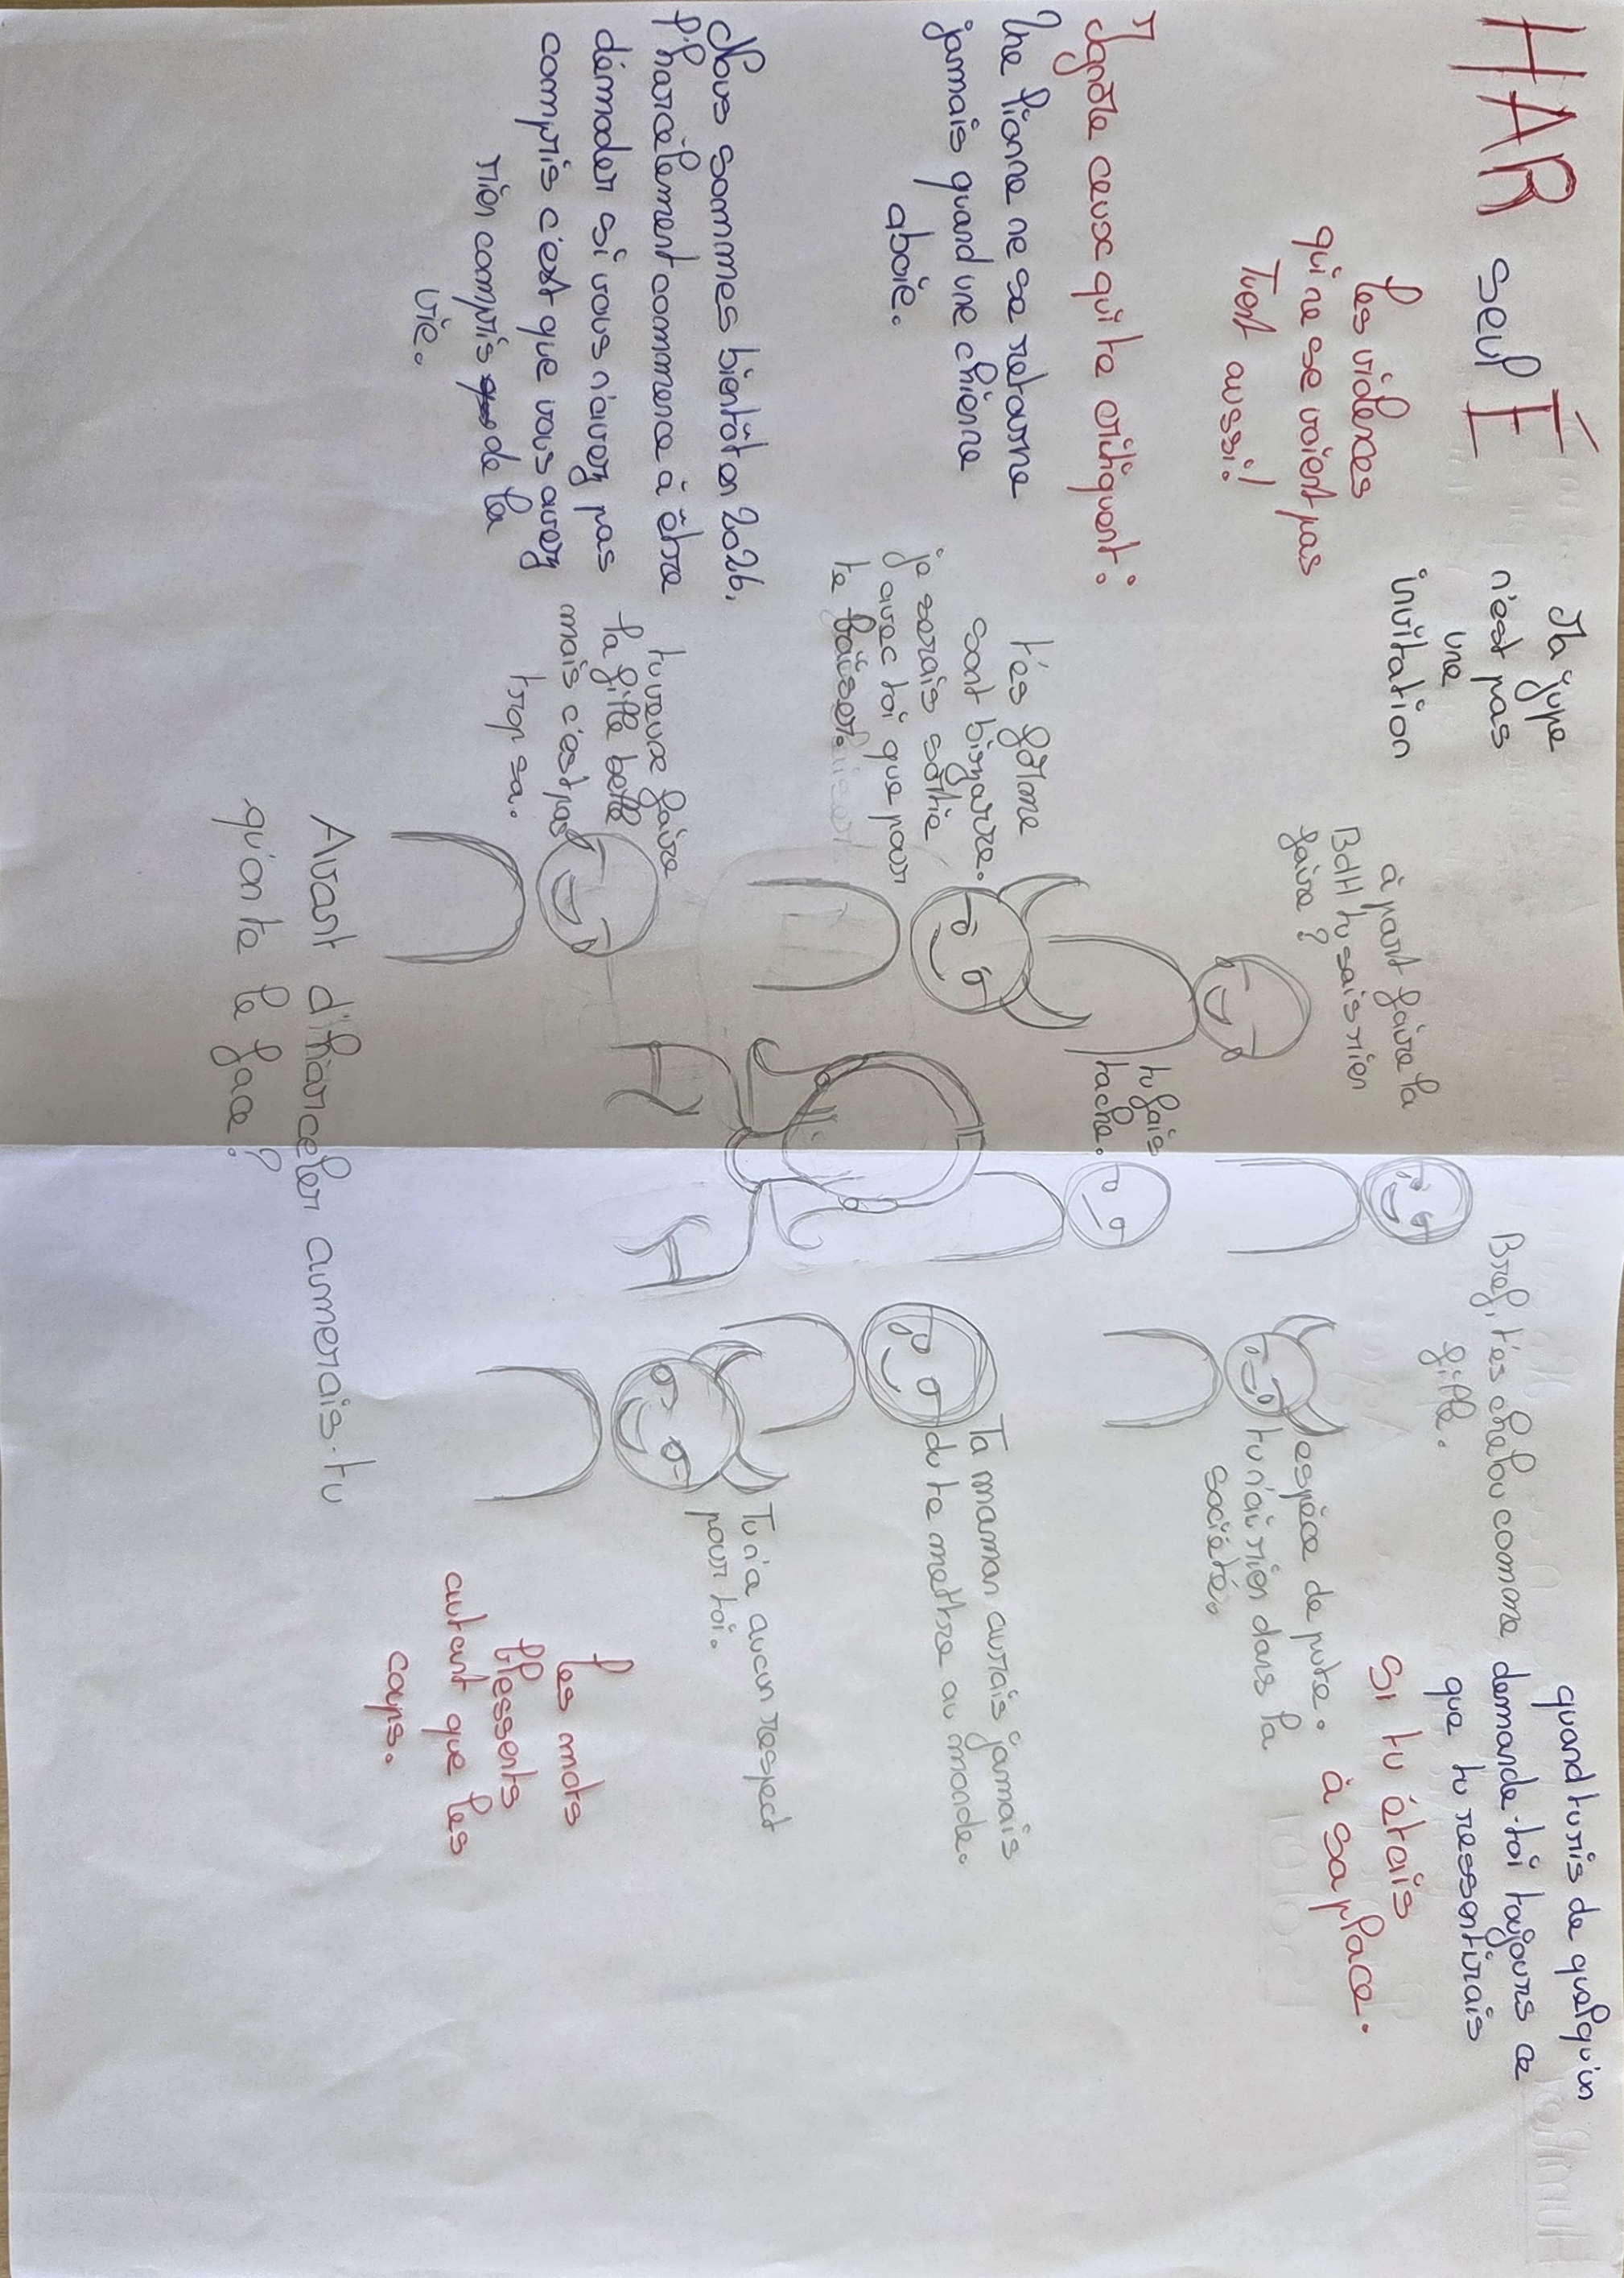 HAR seul É
les violences
qui ne se voient pas
Tuent aussi!
Ignore ceux qui te critiquent:
Une lionne ne se retourne
jamais quand une chienne
aboie.
Nous sommes bientôt en 2026,
l'harcèlement commence à être
démoder si vous n'avez pas
compris c'est que vous avez
rien compris de la
vie.
Ma jupe
n'est pas
une
invitation
à part faire la
BdH tu sais rien
faire ?
t'es forme
sont bizarre.
je serais sortie
avec toi que pour
te baiser.
tu veux faire
la fille belle
mais c'est pas
trop sa.
tu fais
tache.
Bref, t'es chelou comme
fille.
espèce de pute.
tu n'ai rien dans la
société.
Ta maman aurais jamais
du te mettre au monde.
Tu n'a aucun respect
pour toi.
quand tu ris de quelqu'un
demande-toi toujours ce
que tu ressentirais
si tu étais
à sa place.
les mots
blessents
autant que les
coups.
Avant d'harceler aumerais-tu
qu'on te le face ?